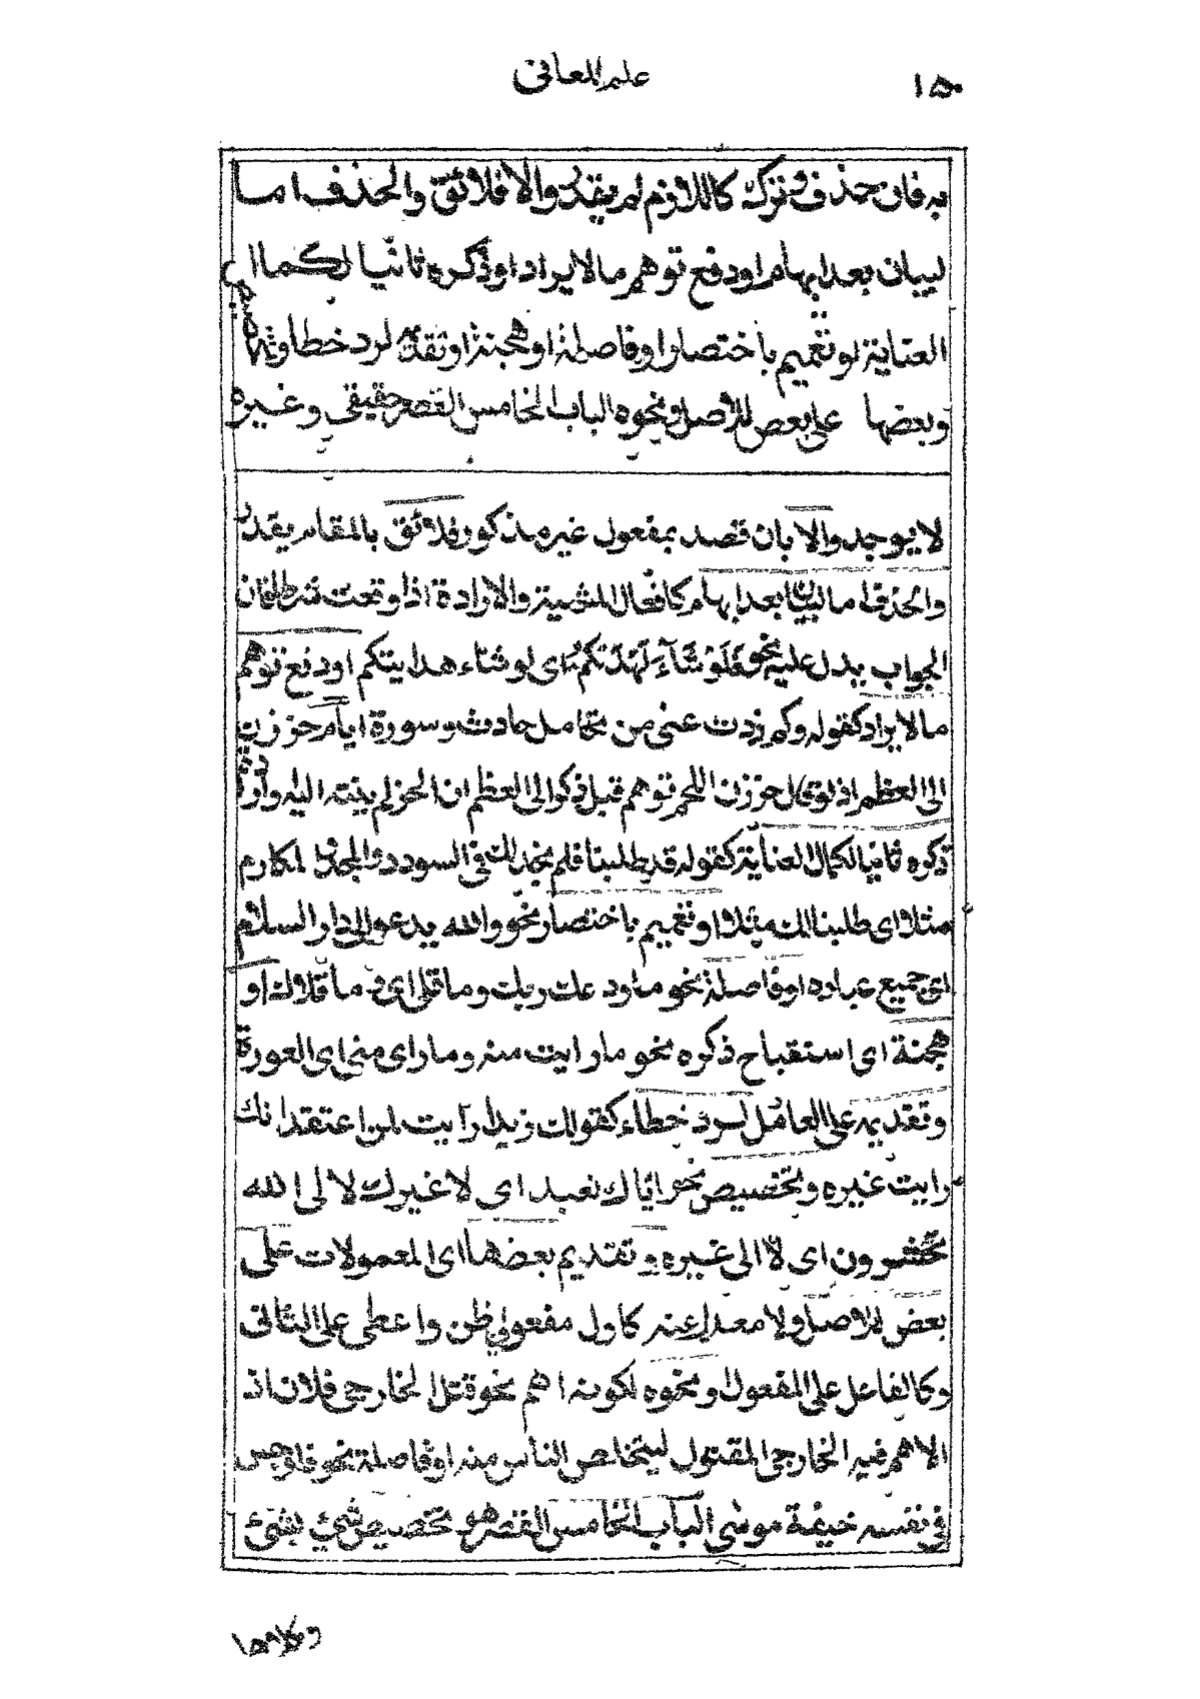 علم المعاني
١٥٠
به فان حذف وترك كاللازم لم يقدر والا فلائق والحذف اما
لبيان بعد ابهام او دفع توهم ما لا يراد او ذكره ثانيا لكمال
العناية او تعميم باختصار او فاصلة او هجنة وتقديمه لرد خطا وتخصيص
وبعضها على بعض للاصل ونحوه الباب الخامس القصر حقيقي وغيره
لا يوجد والا بان قصد بمفعول غير مذكور فلائق بالمقام يقدر
والحذف اما لبيان بعد ابهام كافعال المشيئة والارادة اذا وقعت شرطا فان
الجواب يدل عليه نحو فَلَوْ شَآءَ لَهَدٰىكُمْ اى لو شاء هدايتكم او دفع توهم
ما لا يراد كقوله وكم ذدت عنى من تحامل حادث وسورة ايام حززن
الى العظم اذ لو قال حززن اللحم توهم قبل ذكر الى العظم ان الحز لم ينته اليه وارادة
ذكره ثانيا لكمال العناية كقوله قد طلبنا فلم نجد لك فى السودد والمجد والمكارم
مثلا اى طلبنا لك مثلا او تعميم باختصار نحو والله يدعو الى دار السلام
اى جميع عباده او فاصلة نحو ما ودعك ربك وما قلى اى وما قلاك او
هجنة اى استقباح ذكره نحو ما رايت منه وما راى منى اى العورة
وتقديمه على العامل لرد خطاء كقولك زيدا رأيت لمن اعتقد انك
رايت غيره وتخصيص نحو اياك نعبد اى لا غيرك لا لى الله
تحشرون اى لا الى غيره وتقديم بعضها اى المعمولات على
بعض للاصل ولا معدل عنه كاول مفعولي ظن واعطى على الثانى
وكالفاعل على المفعول او نحوه لكونه اهم نحو قتل الخارجى فلان اذ
الاهم فيه الخارجى المقتول ليتخلص الناس منه او فاصلة نحو فاوجس
فى نفسه خيفة موسى الباب الخامس القصر هو تخصيص شئ بشئ
وكلاهما